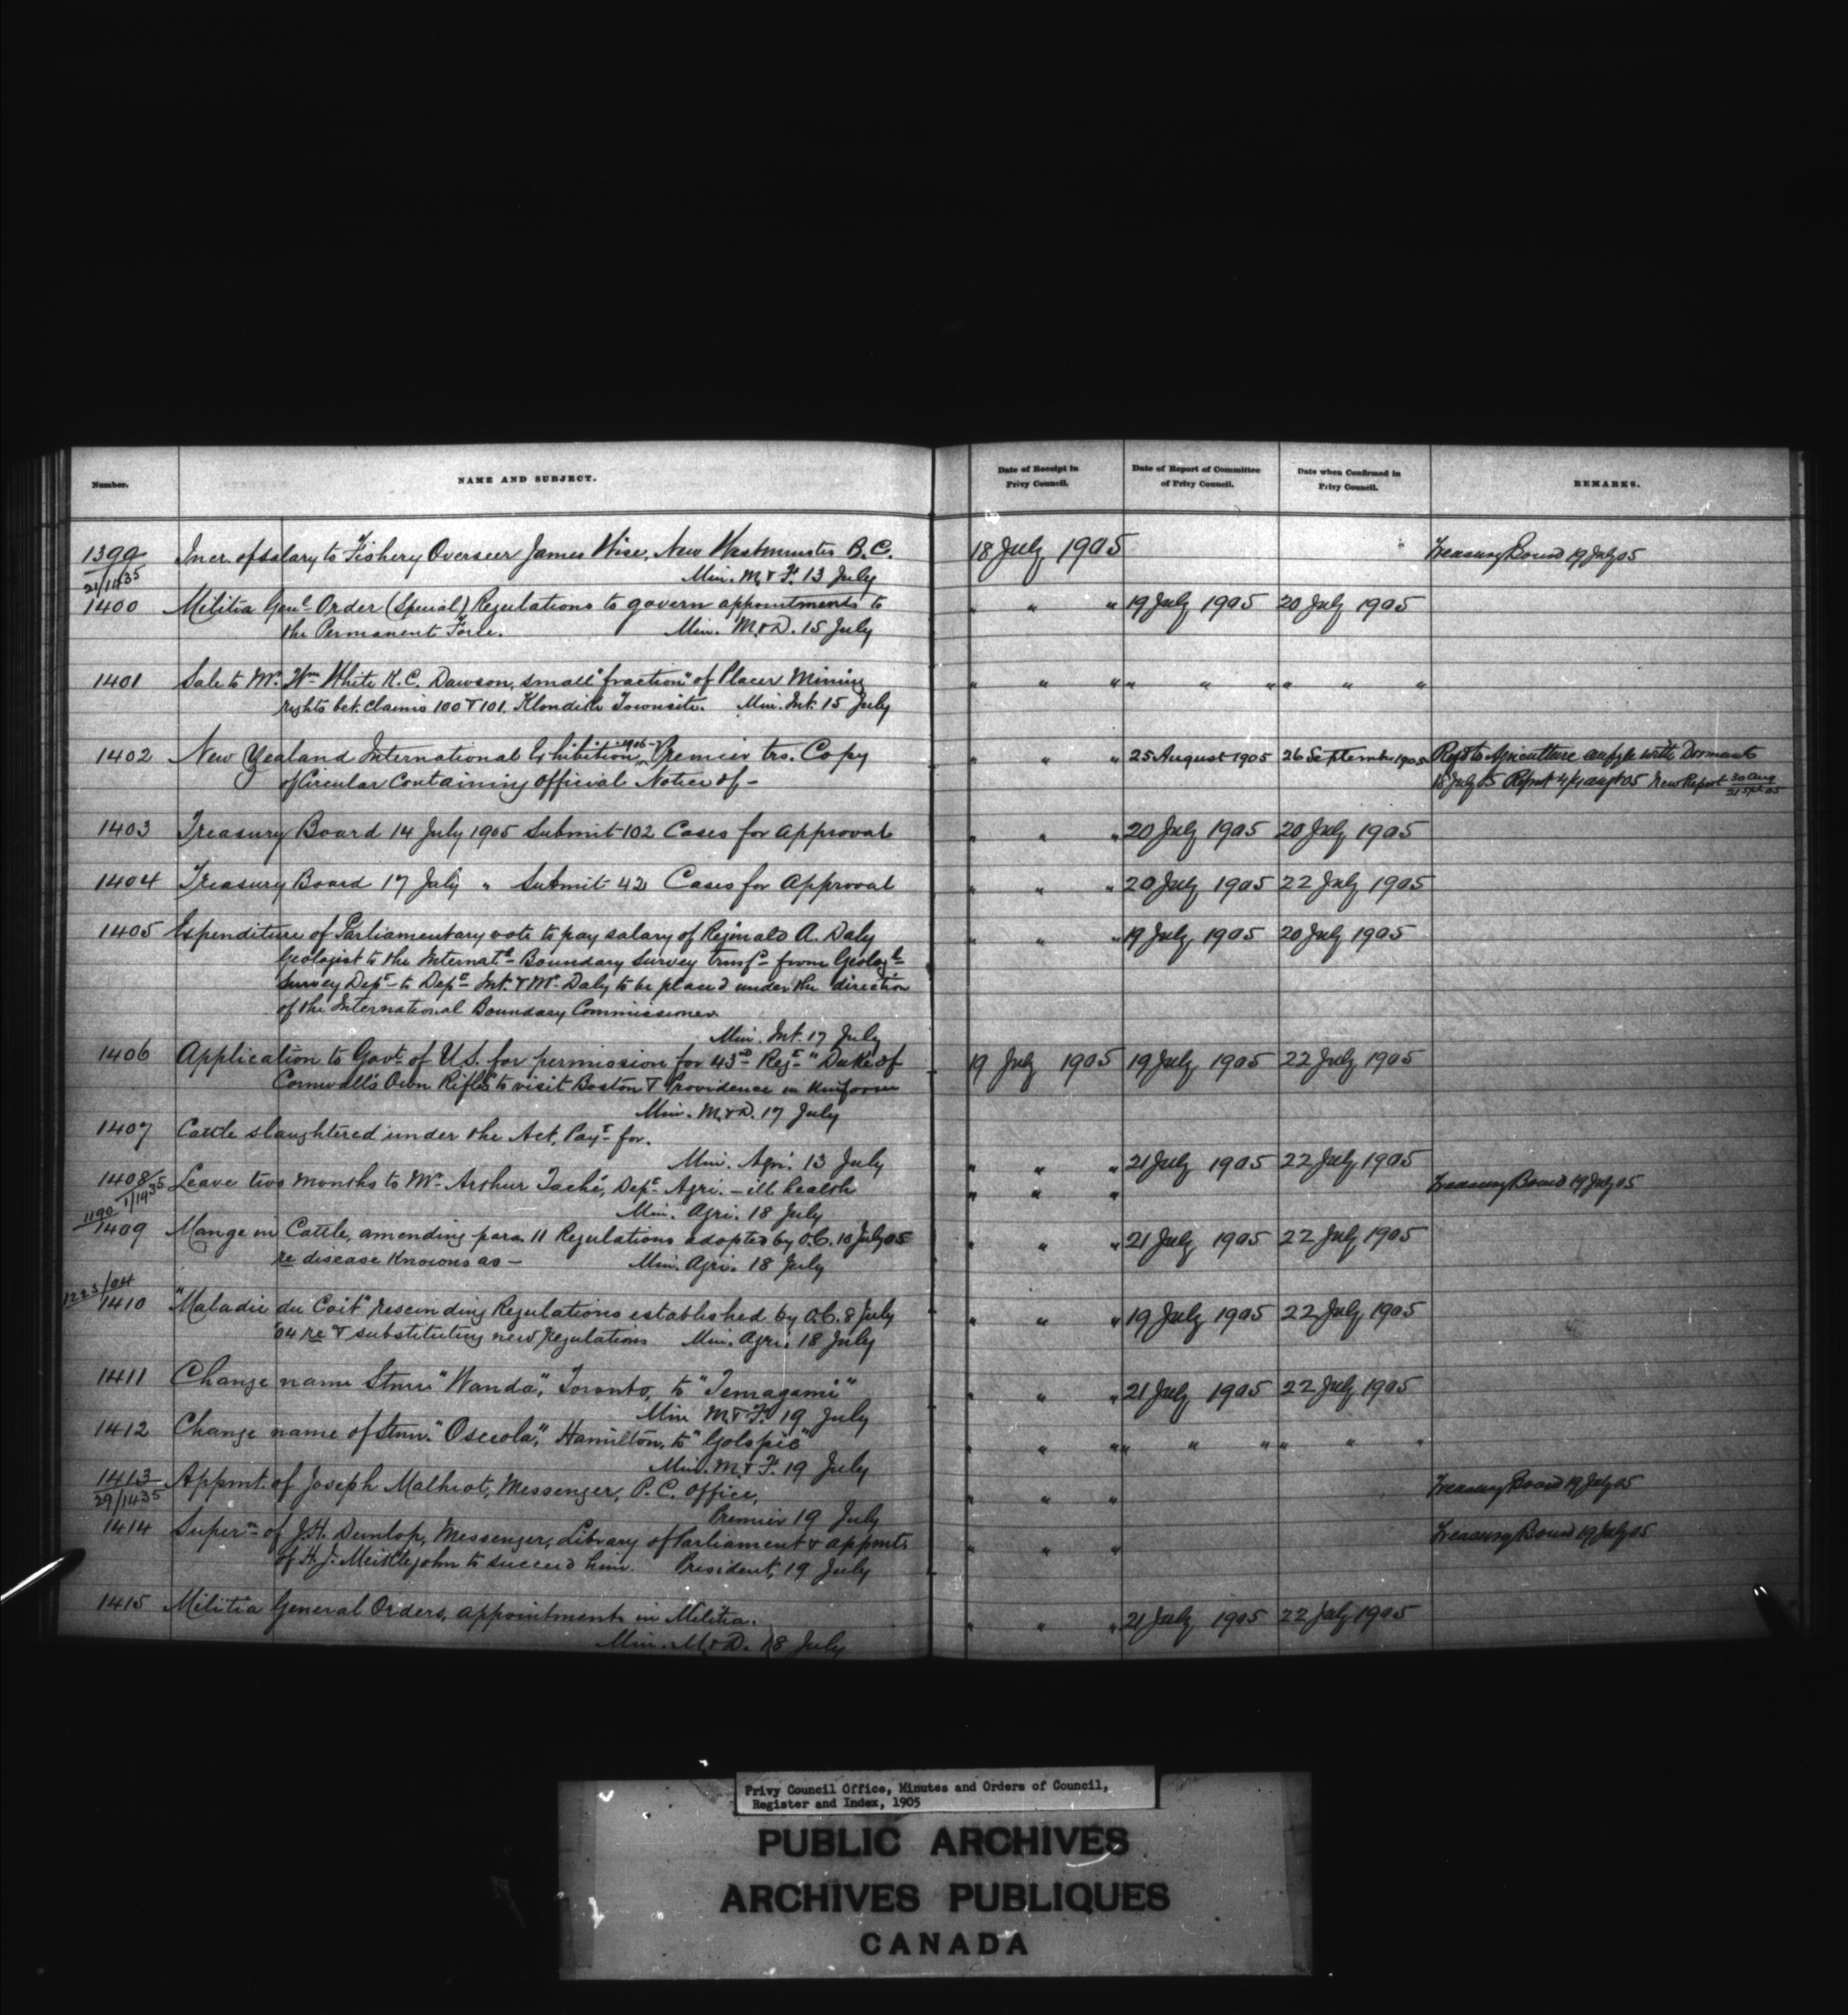 Number. NAME AND SUBJECT. Date of Receipt in Privy Council. Date of Report of Committee of Privy Council. Date when Confirmed in Privy Council. REMARKS.
1399 Incr. of salary to Fishery Overseer James Wise, New Westminster B.C. 18 July 1905 Treasury Board 19 July 05
21/1435 Min. M. & F. 13 July
1400 Militia Genl Order (Special) Regulations to govern appointments to " " " 19 July 1905 20 July 1905
the Permanent Force. Min. M. & D. 15 July
1401 Sale to Mr. Wm White K.C. Dawson, small "fraction" of Placer Mining " " " " " " " " "
rights bet. claims 100 & 101. Klondike Townsite. Min. Int. 15 July
1402 New Zealand International Exhibition, 1906-7 Premier trs. Copy " " " 25 August 1905 26 September 1905 Refd to Agriculture with
of Circular containing official Notice of - 18 July 05 Report 4/4 augt 05 New Report 30 Aug
21 Sept 05
1403 Treasury Board 14 July 1905 Submit 102 Cases for approval " " " 20 July 1905 20 July 1905
1404 Treasury Board 17 July " Submit 42 Cases for approval " " " 20 July 1905 22 July 1905
1405 Expenditure of Parliamentary vote to pay salary of Reginald A. Daly " " " 19 July 1905 20 July 1905
Geologist to the Internatl Boundary Survey transfd from Geologl
Survey Dept to Dept Int. & Mr Daly to be placed under the direction
of the International Boundary Commissioner.
Min. Int. 17 July
1406 Application to Govt of U.S. for permission for 43rd Regt "Duke of 19 July 1905 19 July 1905 22 July 1905
Cornwall's Own Rifles to visit Boston & Providence in Uniform
Min. M. & D. 17 July
1407 Cattle slaughtered under the Act, Payt for.
Min. Agri. 13 July " " " 21 July 1905 22 July 1905
1408 Leave two months to Mr. Arthur Taché, Dept Agri. - ill health " " " Treasury Board 19 July 05
1/1435 Min. Agri. 18 July
1190
1409 Mange in Cattle, amending para 11 Regulations adopted by O.C. 10 July 05 " " " 21 July 1905 22 July 1905
re disease known as - Min. Agri. 18 July
1223/04
1410 "Maladie du Coit" rescinding Regulations established by O.C. 8 July " " " 19 July 1905 22 July 1905
'04 re & substituting new regulations Min. Agri. 18 July
1411 Change name Stmr "Wanda", Toronto, to "Temagami" " " " 21 July 1905 22 July 1905
Min M & F. 19 July
1412 Change name of Stmr. "Osceola", Hamilton, to "Golspie" " " " " " " " " "
Min. M. & F. 19 July
1413 Appmt. of Joseph Malhiot, Messenger, P.C. Office, " " " Treasury Board 19 July 05
29/1435 Premier 19 July
1414 Superan of J.H. Dunlop, Messenger, Library of Parliament & appmt " " " Treasury Board 19 July 05
of H.J. Meiklejohn to succeed him. President, 19 July
1415 Militia General Orders, appointments in Militia. " " " 21 July 1905 22 July 1905
Min. M. & D. 18 July
Privy Council Office, Minutes and Orders of Council,
Register and Index, 1905
PUBLIC ARCHIVES
ARCHIVES PUBLIQUES
CANADA